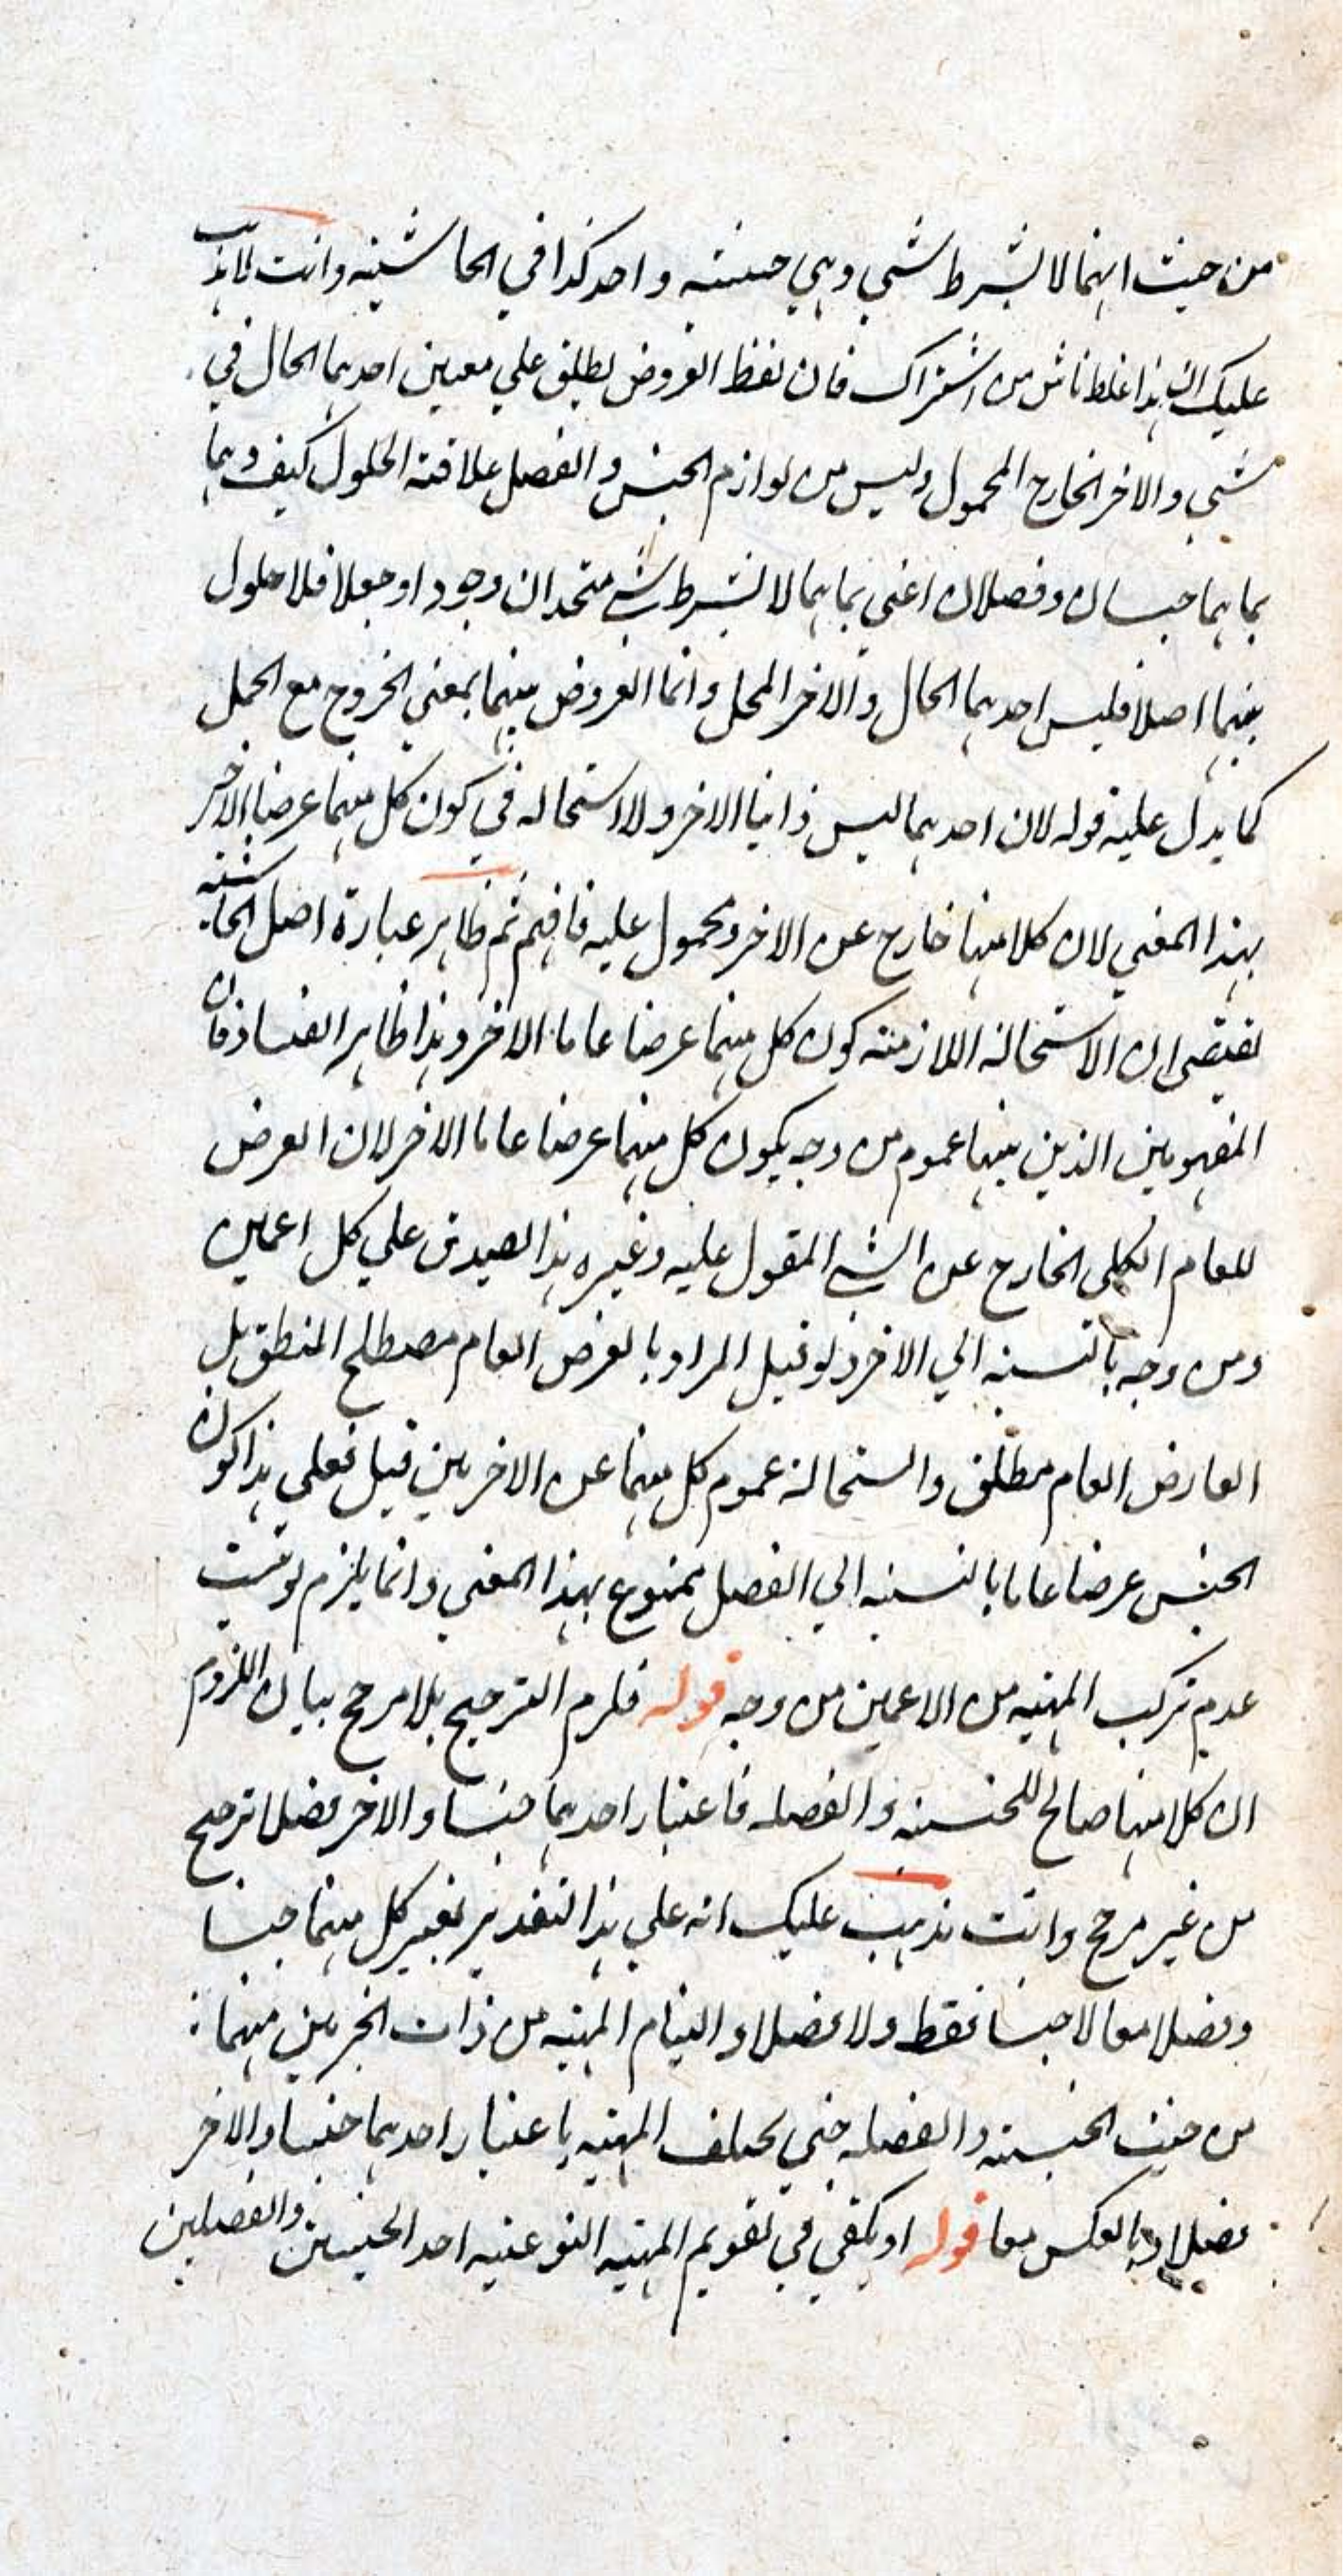 من حيث انهما لا بشرط شي وهي حسنته واحد كذا في الحاشيته وانت لا يذهب
عليك ان هذا غلط ناش من اشتراك فان لفظ العروض يطلق علي معنيين احدهما الحال في
شي والاخر الخارج المحمول وليس من لوازم الجنس والفصل علاقته الحلول كيف وهما
بما هما جنسان وفصلان اعني بما هما لا بشرط شي متحدان وجودا وجعلا فلا حلول
بينهما اصلا فليس احدهما الحال والاخر المحل وانما العروض بينهما بمعني الخروج مع الحمل
كما يدل عليه قوله لان احدهما ليس ذاتيا للاخر ولا استحاله في كون كل منهما عرضا للاخر
بهذا المعني لان كلا منها خارج عن الاخر ومحمول عليه فافهم ثم ظاهر عبارة اصل الحاشيته
تقتضي ان الاستحالة اللازمته كون كل منهما عرضا عاما للاخر وهذا ظاهر الفساد فان
المفهومين الذين بينها عموم من وجه يكون كل منهما عرضا عاما للاخر لان العرض
للعام الكلي الخارج عن الشي المقول عليه وغيره هذا لصيدق علي كل اعمين
ومن وجه بالنسبته الي الاخر ولو قيل المراد بالعرض العام مصطلح المنطق بل
العارض العام مطلق واستحالة عموم كل منهما عن الاخر بين قيل فعلي هذا كون
الجنس عرضا عاما بالنسبته الي الفصل ممنوع بهذا المعني وانما يلزم لو ثبت
عدم تركب المهيه من الاعمين من وجه قوله فلزم الترجيح بلا مرجح بيان اللزوم
ان كلا منها صالح للجنسيه والفصله فاعتبار احدهما جنسا والاخر فصلا ترجيح
من غير مرجح وانت تذهب عليك انه علي هذا التقدير تغير كل منهما جنسا
وفصلا معا لا جنسا فقط ولا فصلا والتيام المهيه من ذات الجزئين منهما
من حيث الجنسيه والفصله حتي يختلف المهيه باعتبار احدهما جنسا والاخر
فصلا وبالعكس معا قوله او يكفي في تقويم المهيه النوعيه احد الجنسين والفصلين